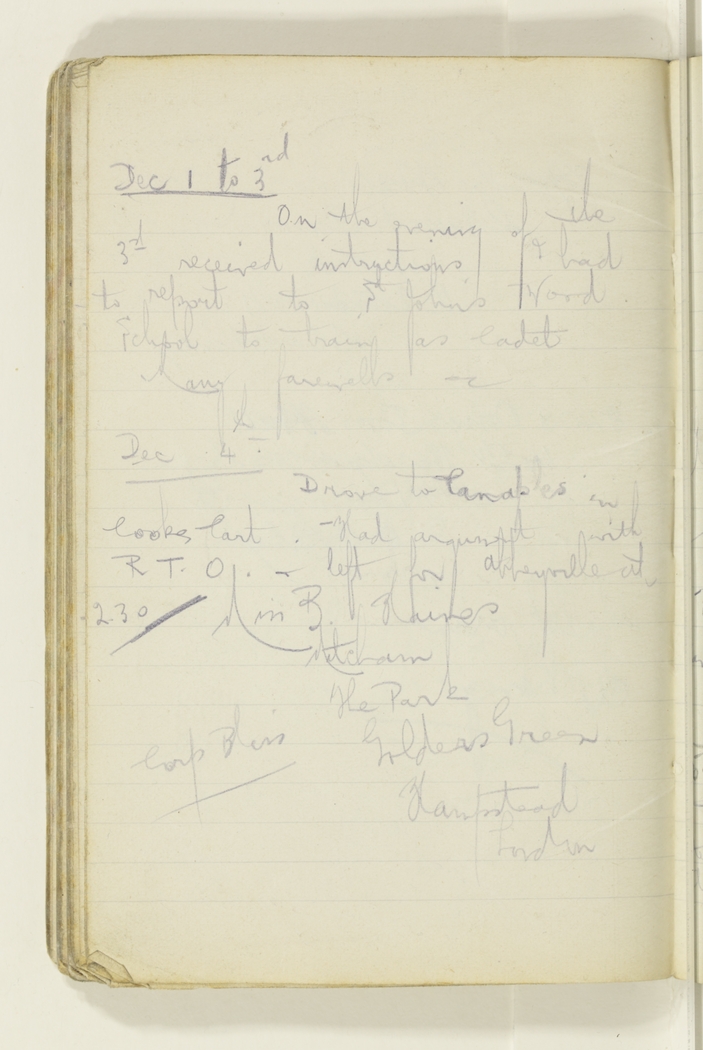 Dec 1 to 3rd
On the evening of the
3rd received instructions & had
to report to St John's Wood
School to train as Cadet
Many farewells
Dec 4th
Drove to Canaples in
cooks cart. - Had argument with
R T. O. - left for Abbeyville at
2.30
B. Haines
Mitcham
The Park
Corp Bliss Golders Green
Hampstead
London